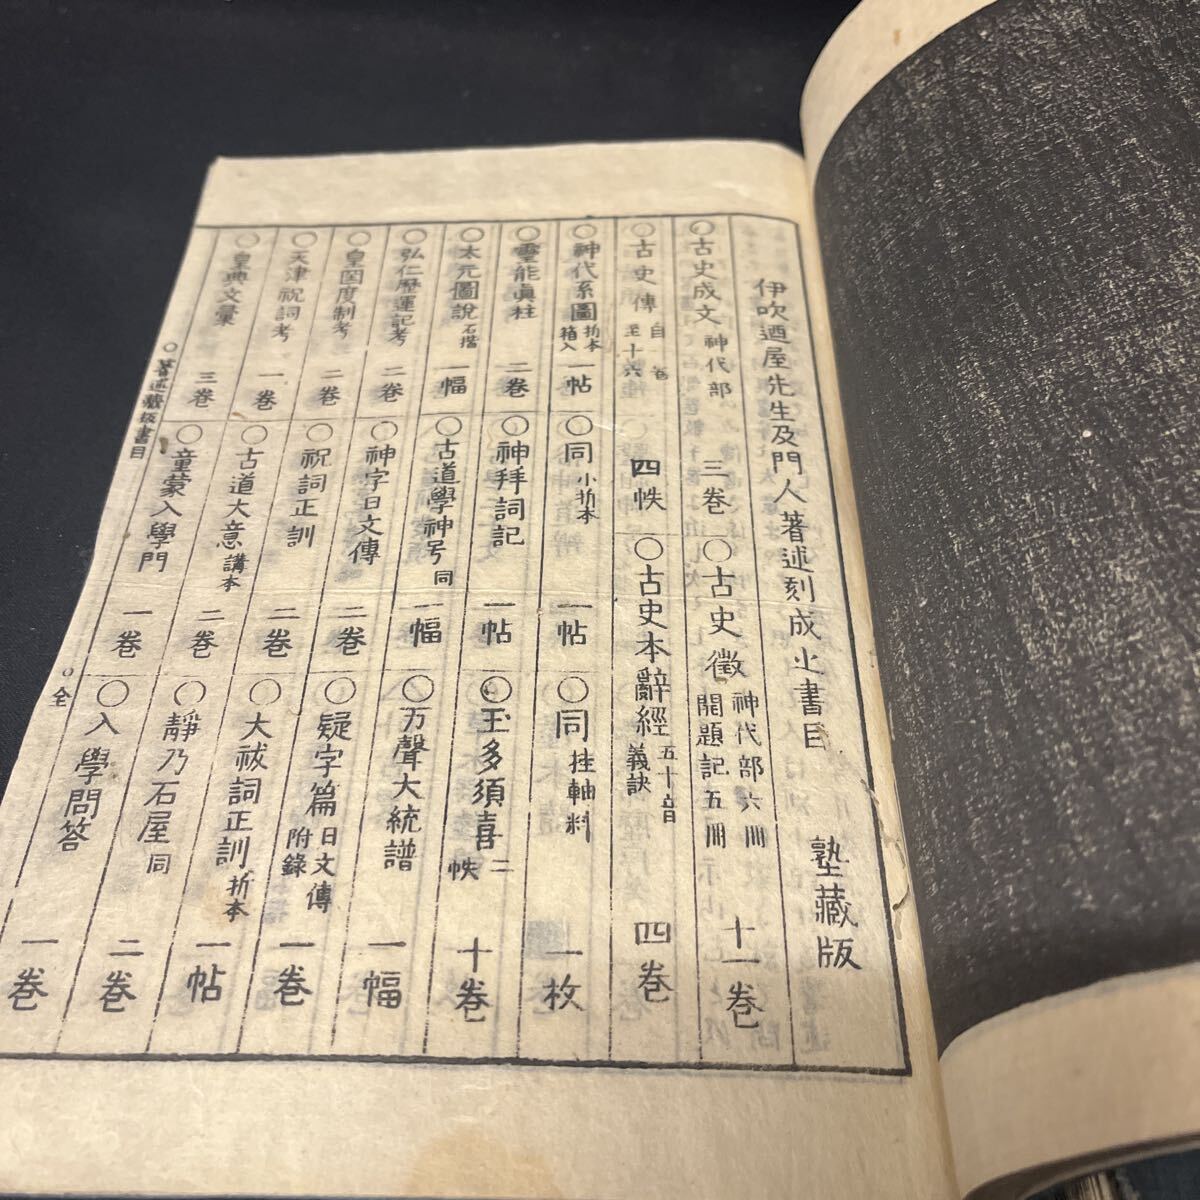 伊吹迺屋先生及門人著述刻成之書目 塾藏版
○古史成文 神代部 三巻 ○古史徴 神代部六冊 開題記五冊 十一巻
○古史傳 自巻至十六 四帙 ○古史本辭經 五十音義訣 四巻
○神代系圖 折本箱入 一帖 ○同 小折本 一帖 ○同 挂軸料 一枚
○靈能眞柱 二巻 ○神拜詞記 一帖 ○玉多須喜 二帙 十巻
○太元圖說 石搨 一幅 ○古道學神号 同 一幅 ○万聲大統譜 一幅
○弘仁歴運記考 二巻 ○神字日文傳 二巻 ○疑字篇 日文傳附錄 一巻
○皇国度制考 二巻 ○祝詞正訓 二巻 ○大祓詞正訓 折本 一帖
○天津祝詞考 一巻 ○古道大意 講本 二巻 ○靜乃石屋 同 二巻
○皇典文彙 三巻 ○童蒙入學門 一巻 ○入學問答 一巻
○著述藏板書目 ○全